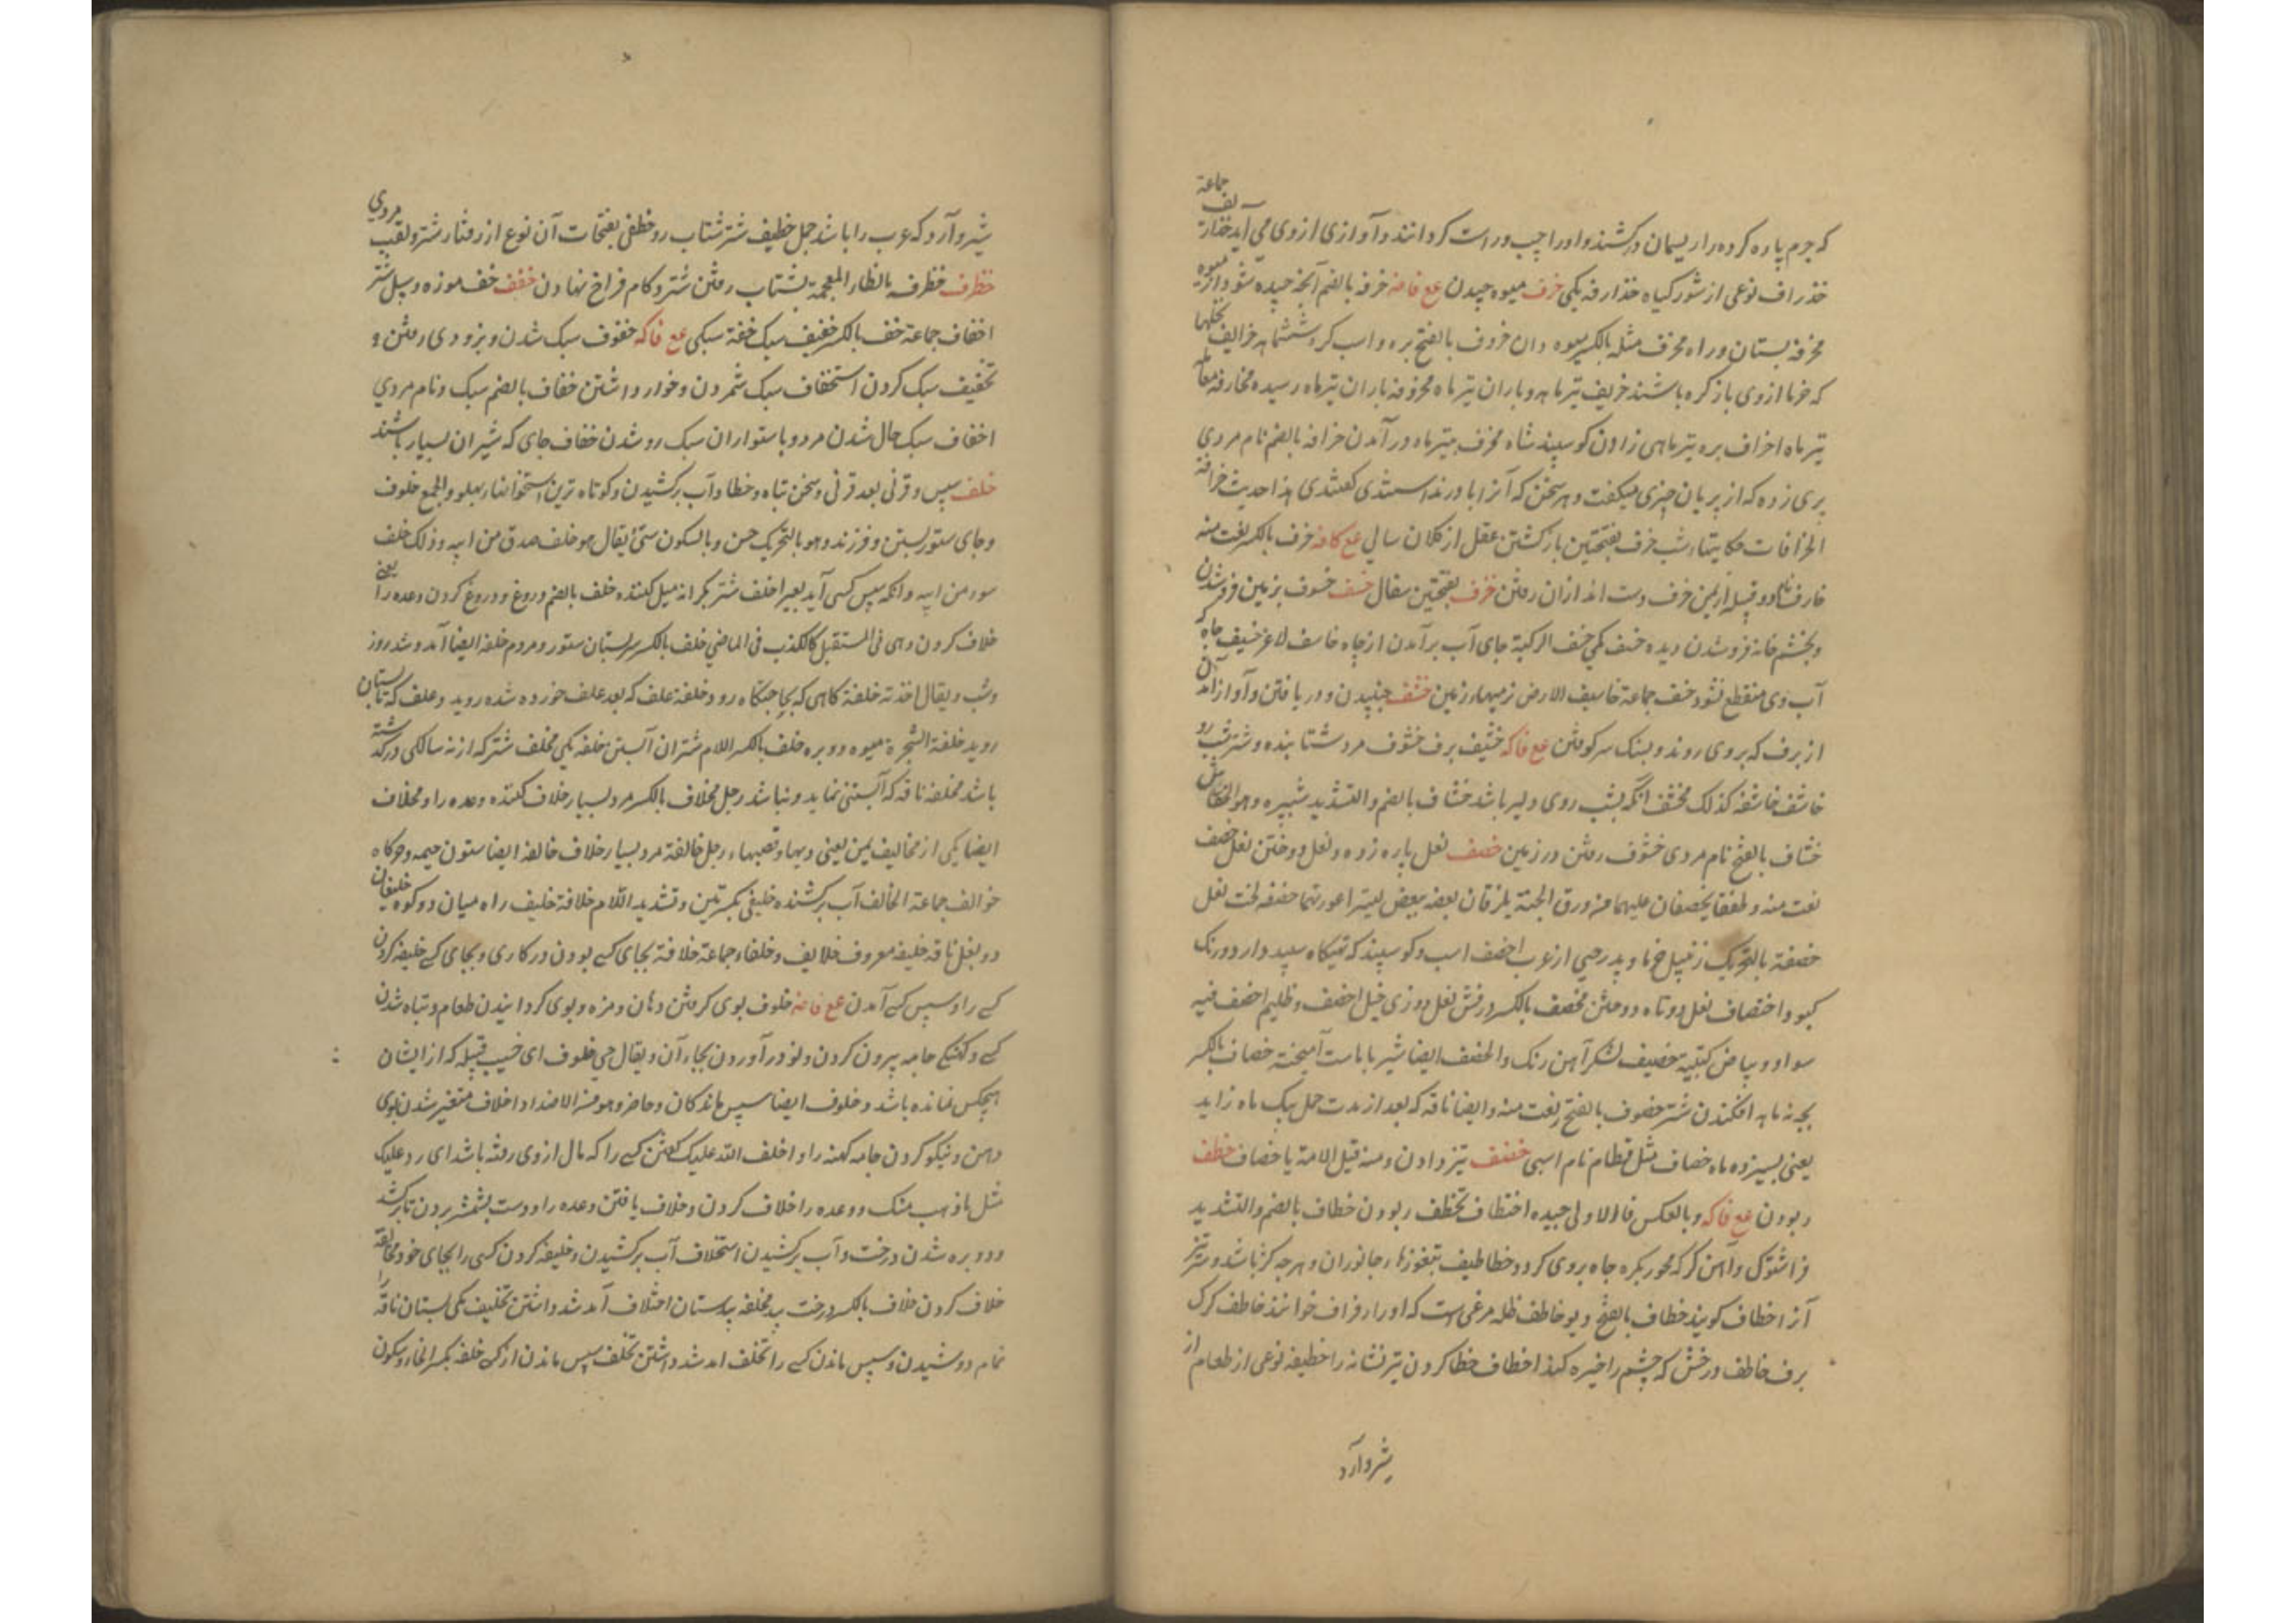 جماعة
که جرم پاره کرده را ریسمان در کشند و او را چپ و راست کردانند و آوازی از وی می آید خذاریف
خذراف نوعی از شور کیاه خذارفه یکی خرف میوه چیدن ع خرفه بالضم آنچه چیده شود از میوه
مخرفه بستان و راه مخرف مثله بالکسر میوه دان خروف بالفتح بره و اسب کره ششماهه خرایف نخلها
که خرما از وی باز کرده باشند خریف تیر ماه و باران تیر ماه مخروفه باران تیرماه رسیده مخارفه معامله
تیر ماه اخراف بره تیر ماهی زادن کوسپند شاه مخرف بتیر ماه در آمدن خرافه بالضم نام مردی
پری زده که از پریان چیزی میکفت و هر سخن که آنرا باور نداشتندی کفتندی هذا حدیث خرافة
الخرافات حکایتهاء شب خرف بفتحتین بازکشتن عقل از کلان سالی ع خرف بالکسر نعت منه
خارف نام دو قبیله از یمن خزف دست اندازان رفتن خزف بفتحتین سفال خسف خسوف بزمین فرو شدن
و بچشم خانه فرو شدن دیده خسف یکی خسف الرکیة جای آب برآمدن از چاه خاسف لاغر خسیف چاه که
آب وی منقطع نشود خسف جماعة خاسیف الارض زمینهاء زمین خشف جنبیدن و در یافتن و آواز آمدن
از برف که بر وی روند و بسنک سر کوفتن ع خشیف برف خشوف مرد شتابنده و شتر شب رو
خاشف خاشفه کذلک مخشف آنکه بشب روی دلیر باشد خشاف بالضم والتشدید شبپره وهو الخفاش
خشاف بالفتح نام مردی خشوف رفتن در زمین خصف نعل پاره زده و نعل دوختن نعل خصف
نعت منه وطفقا یخصفان علیهما من ورق الجنة یلزقان بعضه ببعض لیسترا عورتهما خصفه لخت نعل
خصفة بالتحریک زنبیل خرما و پدر حیی از عرب اخصف اسب و کوسپند که تهیکاه سپید دارد و رنک
کبود اختصاف نعل دوتاه دوختن مخصف بالکسر درفش نعل دوزی خیل اخصف و ظلیم اخصف فیه
سواد و بیاض کتیبة خصیف لشکر آهن رنک والخصیف ایضا شیر با ماست آمیخته خصاف بالکسر
بچه نه ماهه افکندن شتر خصوف بالفتح نعت منه و ایضا ناقه که بعد از مدت حمل بیک ماه زاید
یعنی بسیزده ماه خصاف مثل قطام نام اسبی خضف تیز دادن و منه قیل الامة یا خضاف خطف
ربودن ع وبالعکس فا الاولی جیده اختطاف تخطف ربودن خطاف بالضم والتشدید
فراشتوک و آهن کژ که محور بکره چاه بر وی کردد خطاطیف جانوران و هر چه کژ باشد و تیر
آنرا خطاف کویند خطاف بالفتح دیو خاطف ظله مرغی است که او را رفراف خوانند خاطف کرک
برق خاطف درخش که چشم را خیره کند اخطاف خطا کردن تیر نشانه را خطیفه نوعی از طعام از
شیر و آرد
شیر و آرد که عرب را باشد جمل خطیف شتر شتاب رو خطفی بفتحات آن نوع از رفتار شتر و لقب مردی
خظرف خظرفه بالظاء المعجمة بشتاب رفتن شتر و کام فراخ نهادن خفف خف موزه و سپل شتر
اخفاف جماعة خف بالکسر خفیف سبک خفة سبکی ع خفوف سبک شدن و بزودی رفتن و
تخفیف سبک کردن استخفاف سبک شمردن و خوار داشتن خفاف بالضم سبک و نام مردی
اخفاف سبک حال شدن مرد و با ستواران سبک رو شدن خفاف جای که شیران بسیار باشند
خلف سپس و قرنی بعد قرنی و سخن تباه و خطا و آب برکشیدن و کوتاه ترین استخوانهاء پهلو والجمع خلوف
و جای ستور بستن و فرزند وهو بالتحریک حسن وبالسکون سیئ یقال هو خلف صدق من ابیه وذلک خلف
سوء من ابیه و انکه سپس کسی آید بعیر اخلف شتر بکرانه میل کننده خلف بالضم دروغ و دروغ کردن وعده را یعنی
خلاف کردن وهی فی المستقبل کالکذب فی الماضی خلف بالکسر سر پستان ستور و مردم خلفه ایضا آمد و شد روز
و شب و یقال اخذته خلفة کاهی که بجای جنبکاه رود و خلفة علف که بعد علف خورده شده روید و علف که تابستان
روید خلفة الشجرة میوه دو بره خلف بالکسر اللام شتران آبستن خلفه یکی مخلف شتر که از نه سالکی درکذشته
باشد مخلفه ناقه که آبستنی نماید و نباشد رجل مخلاف بالکسر مرد بسیار خلاف کننده وعده را و مخلاف
ایضا یکی از مخالیف یمن یعنی دیهها و قصبهاء رجل خالفة مرد بسیار خلاف خالفه ایضا ستون خیمه و خرکاه
خوالف جماعة الخالف آب برکشنده خلیفی بکسرتین و تشدید اللام خلافة خلیف راه میان دو کوه خلیفان
دو بغل ناقه خلیفه معروف خلایف و خلفاء جماعة خلافة بجای کسی بودن در کاری و بجای کسی خلیفه کردن
کسی را و سپس کسی آمدن ع خلوف بوی کرفتن دهان و مزه و بوی کردانیدن طعام و تباه شدن
کسی و کهنکی جامه بیرون کردن و نو در آوردن بجاء آن و یقال حی خلوف ای غیب قبیله که از ایشان
هیچکس نمانده باشد و خلوف ایضا سپس ماندکان و حاضر وهو من الاضداد اخلاف متغیر شدن بوی
دهن و نیکو کردن جامه کهنه را و اخلف الله علیک کفتن کسی را که مال از وی رفته باشد ای رد علیک
مثل ما ذهب منک و وعده را خلاف کردن و خلاف یافتن وعده را و دست بشمشیر بردن تا برکشد
و دو بره شدن درخت و آب برکشیدن استخلاف آب برکشیدن و خلیفه کردن کسی را بجای خود مخالفة
خلاف کردن خلاف بالکسر درخت بید مخلفه بیدستان اختلاف آمد شد داشتن تخلیف یکی پستان ناقه را
تمام دوشیدن و سپس ماندن کسی را تخلف امد شد داشتن تخلف سپس ماندن از کسی خلفه بکسر الخاء و سکون